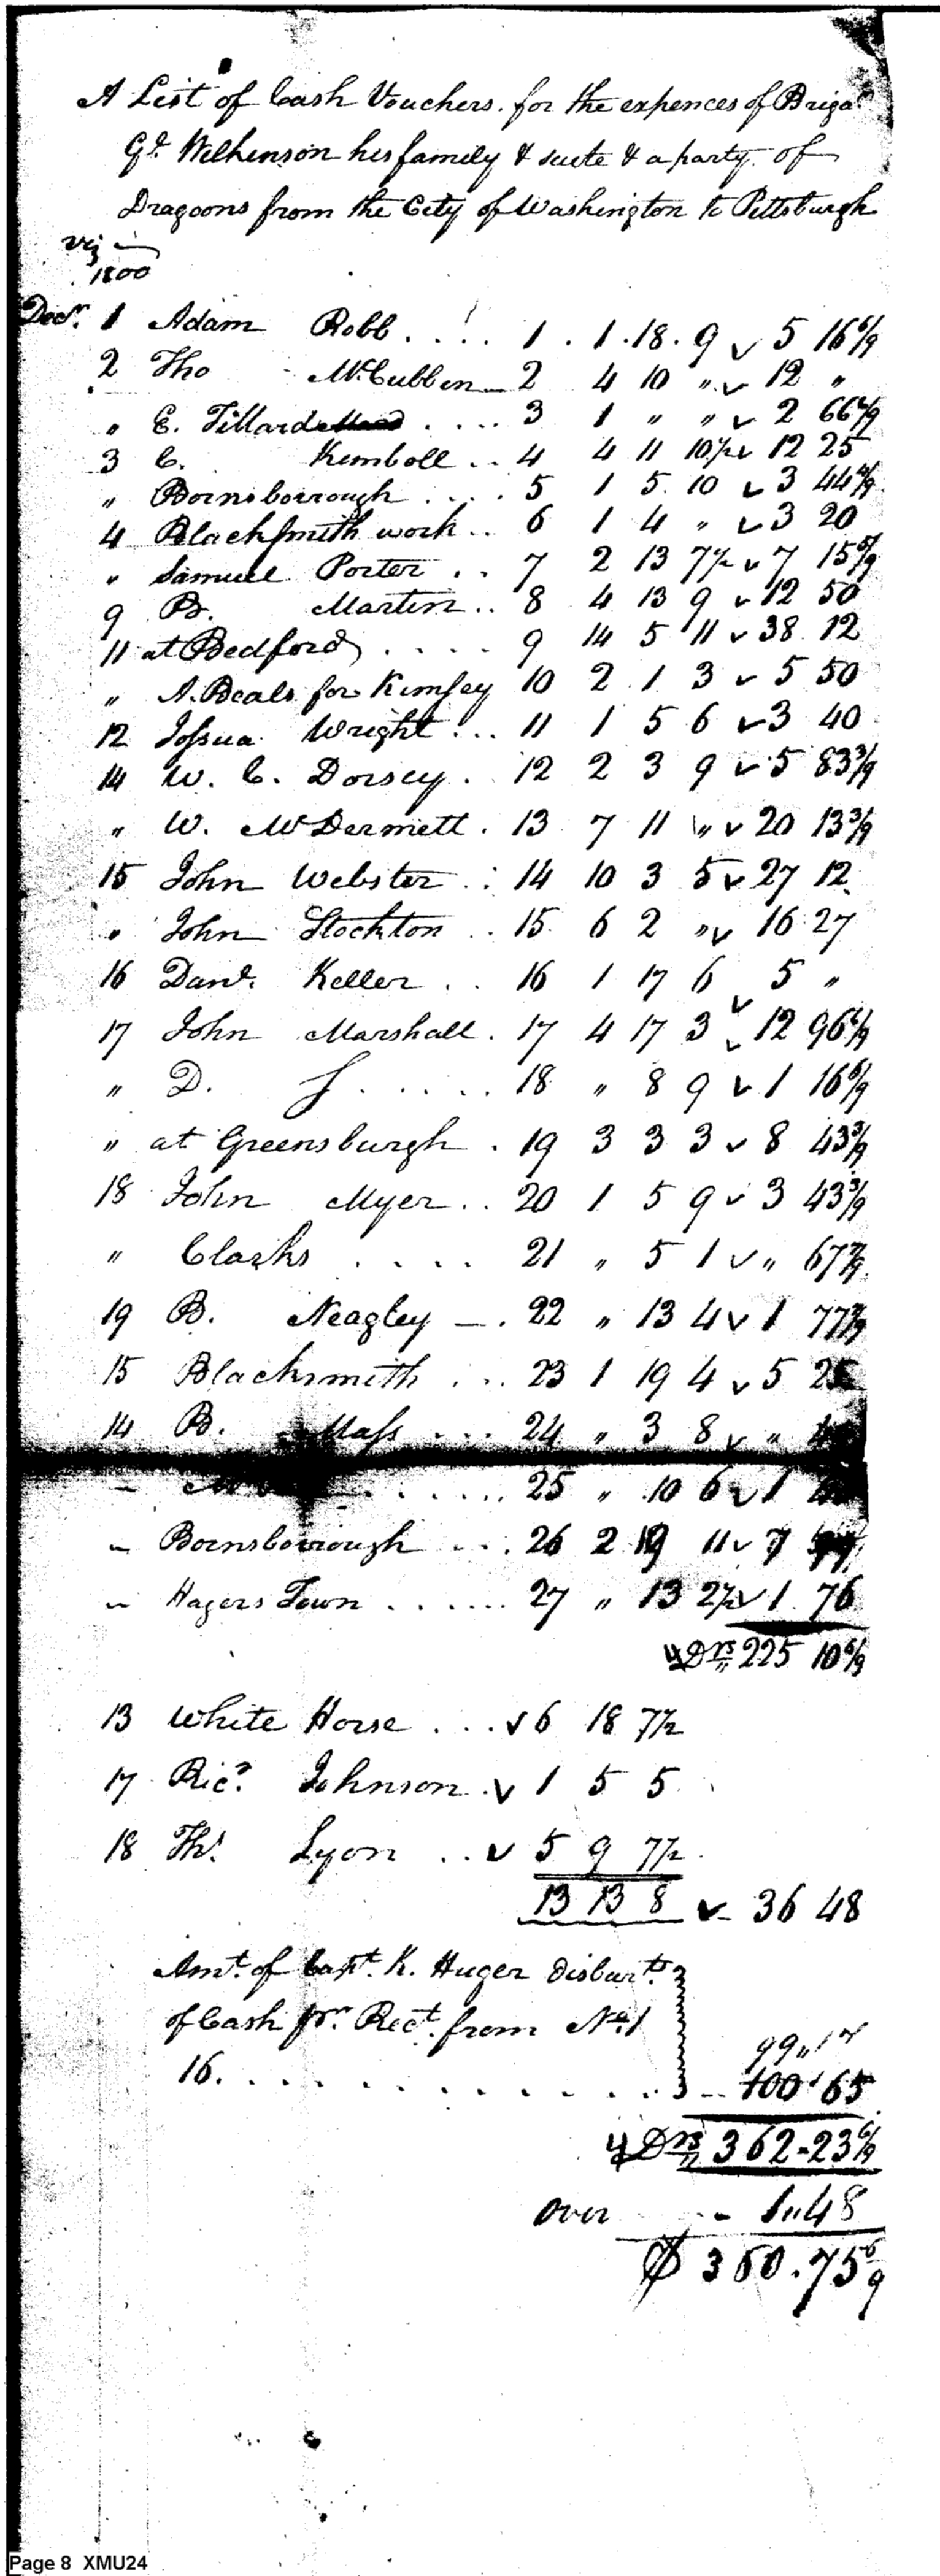 A List of Cash Vouchers. for the expences of Brigad
Gl. Wilkinson his family & suite & a party of
Dragoons from the City of Washington to Pittsburgh
viz
1800
Decr. 1 Adam Robb .... 1 . 1 . 18 . 9 ✓ 5 16 6/9
2 Tho McCubbin — 2 4 10 " ✓ 12 "
" E. Tillard .... 3 1 " " ✓ 2 66 6/9
3 C. Kimboll .. 4 4 11 10½ ✓ 12 25
" Bornsborrough .... 5 1 5 10 ✓ 3 44 4/9
4 Blacksmith work .. 6 1 4 " ✓ 3 20
" Samuel Porter .. 7 2 13 7½ ✓ 7 15 5/9
9 B. Martin .. 8 4 13 9 ✓ 12 50
11 at Bedford .... 9 14 5 11 ✓ 38 12
" A. Beals for Kimsey 10 2 1 3 ✓ 5 50
12 Jossua Wright ... 11 1 5 6 ✓ 3 40
14 W. C. Dorsey . 12 2 3 9 ✓ 5 83 3/9
" W. McDermett . 13 7 11 " ✓ 20 13 3/9
15 John Webster .. 14 10 3 5 ✓ 27 12
" John Stockton .. 15 6 2 " ✓ 16 27
16 Danl. Keller .. 16 1 17 6 ✓ 5 "
17 John Marshall . 17 4 17 3 ✓ 12 96 6/9
" D. J ..... 18 " 8 9 ✓ 1 16 6/9
" at Greensburgh . 19 3 3 3 ✓ 8 43 3/9
18 John Myer .. 20 1 5 9 ✓ 3 43 3/9
" Clarks .... 21 " 5 1 ✓ " 67 7/9
19 B. Neagley — . 22 " 13 4 ✓ 1 77 7/9
15 Blacksmith ... 23 1 19 4 ✓ 5 25
14 B. Mass ... 24 " 3 8 ✓ "
" ...... 25 " 10 6 ✓ 1
" Bornsborrough ... 26 2 19 11 ✓ 7
" Hagers Town ...... 27 " 13 2½ ✓ 1 76
Drs 225 10 6/9
13 White Horse ... ✓ 6 18 7½
17 Ricd. Johnson . ✓ 1 5 5
18 Ths. Lyon .. ✓ 5 9 7½
13 13 8 ✓ 36 48
Amt. of Capt. K. Huger disburts.
of Cash pr. Rect. from No. 1
99,,17
16. ............ 100 65
Drs 362-23 6/9
over - 1,,48
$ 360.75 6/9
Page 8 XMU24